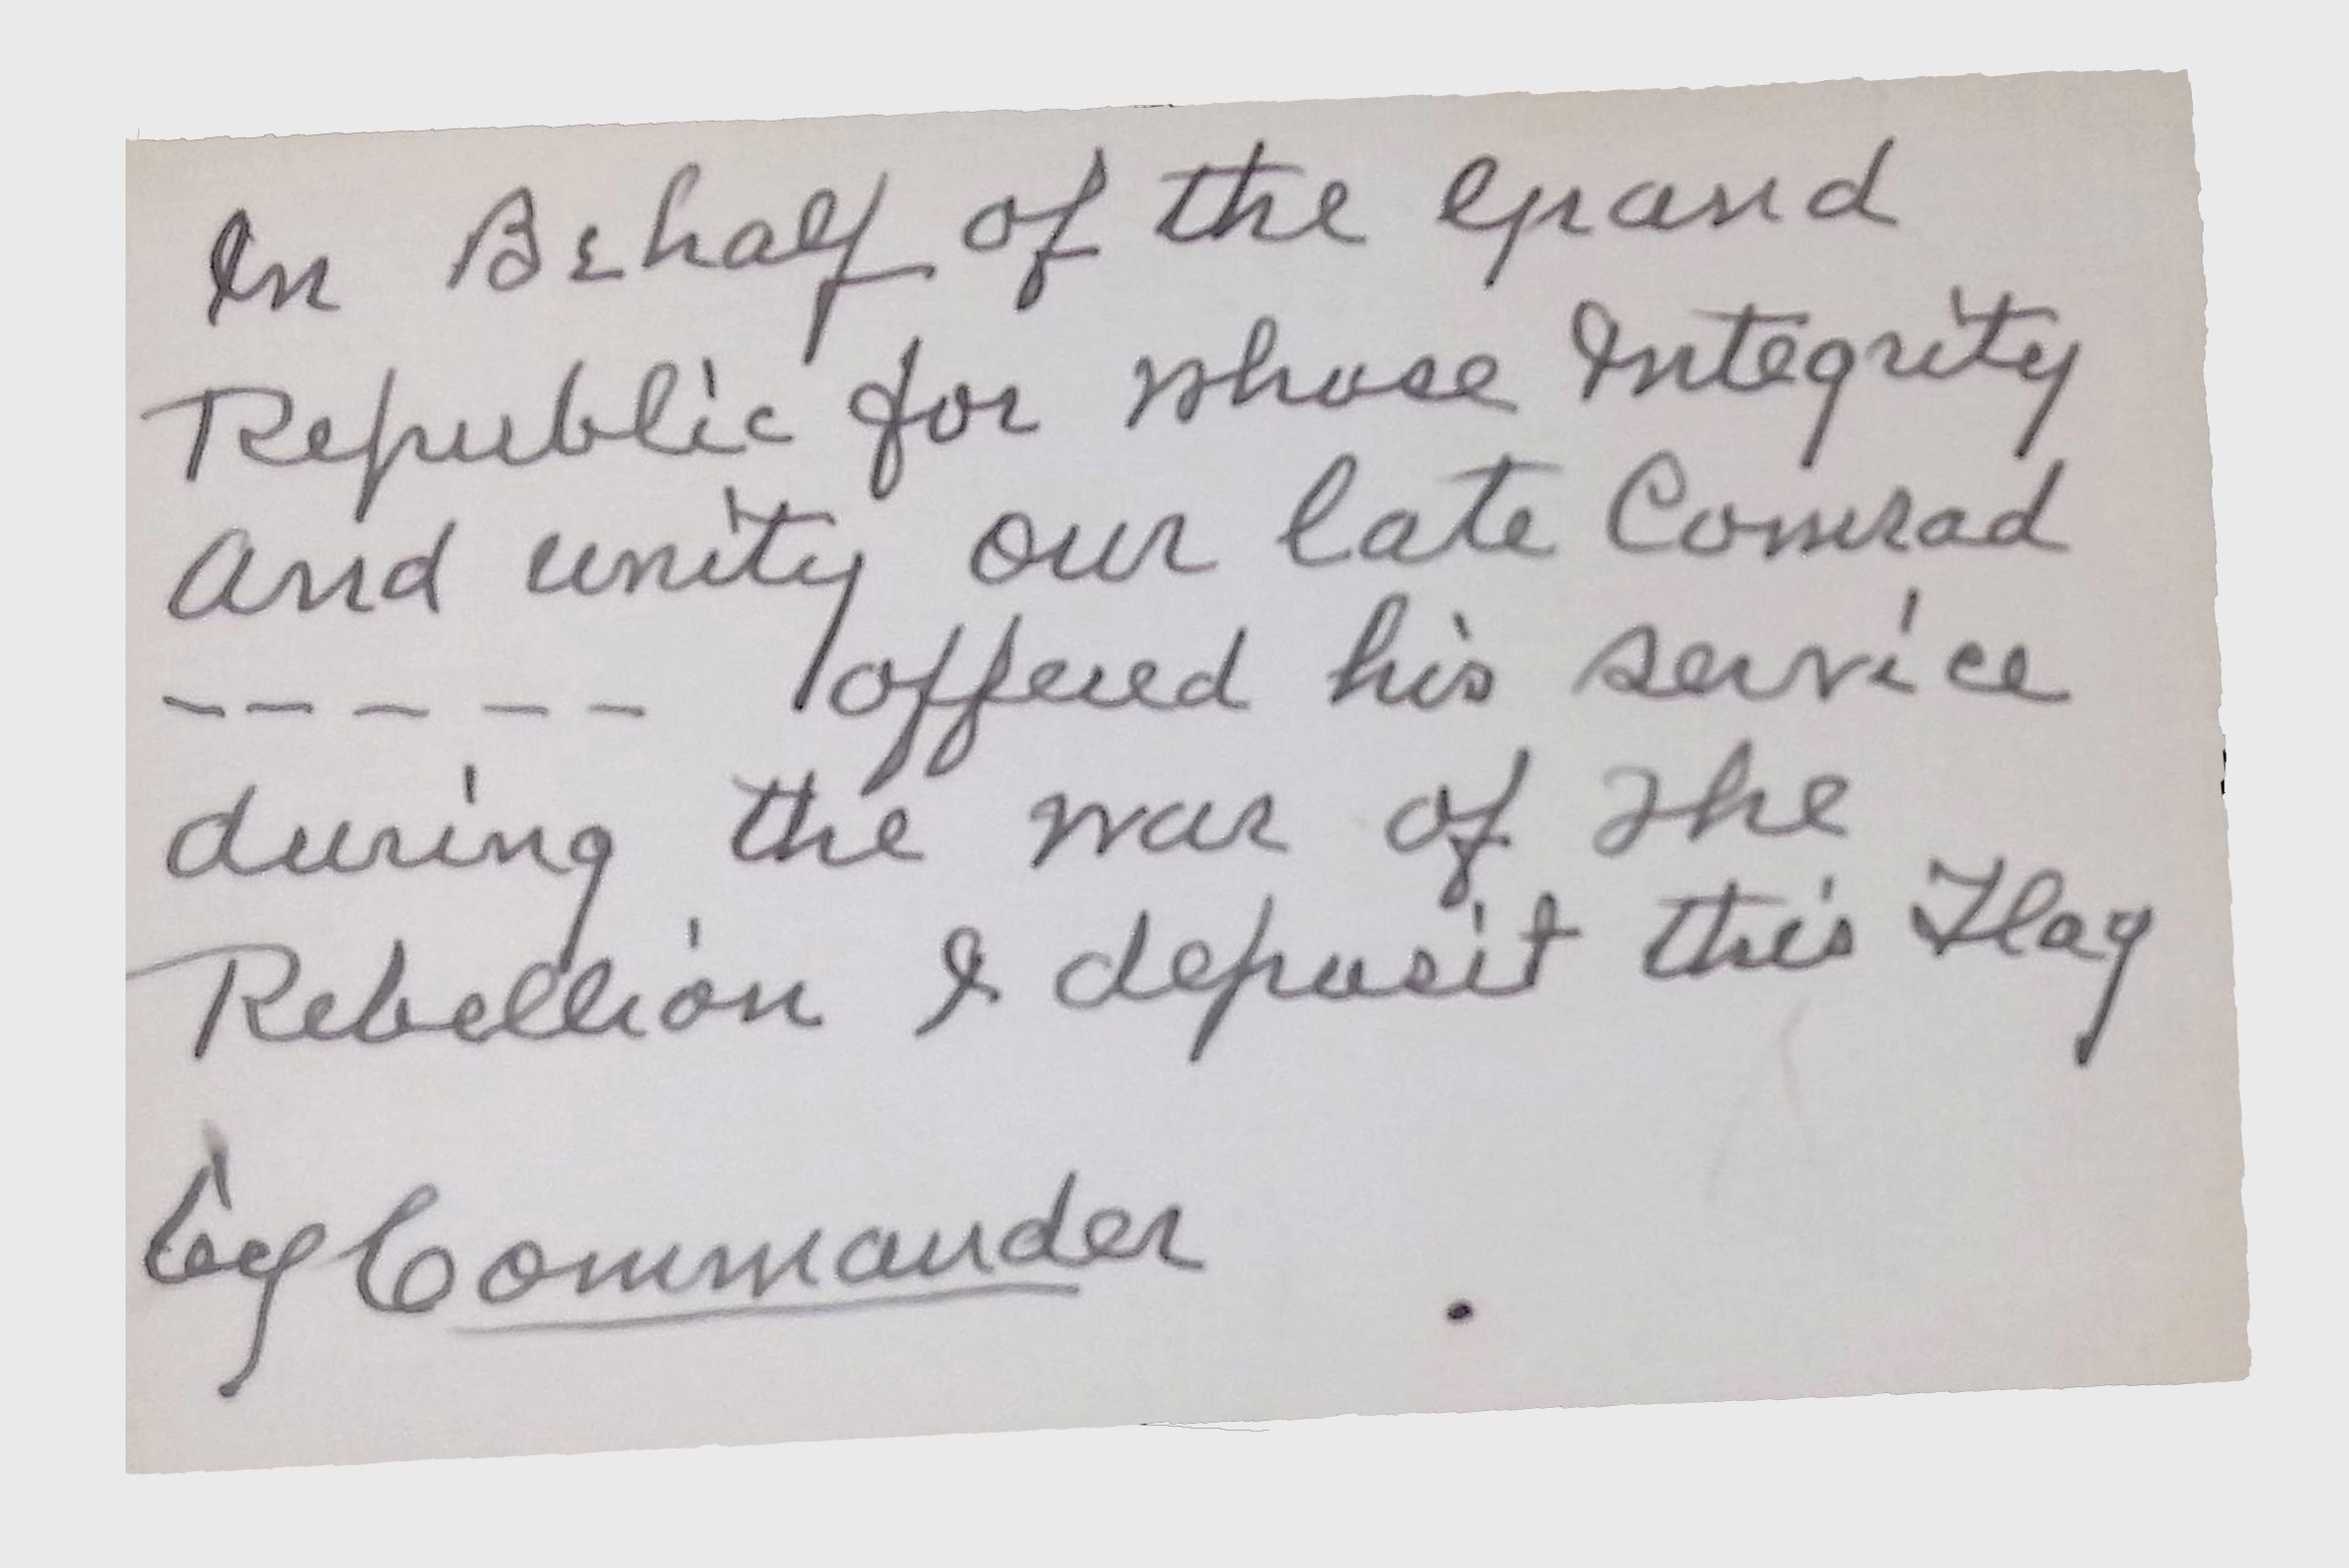 In Behalf of the Grand
Republic for whose Integrity
and unity our late Comrad
- - - - - offered his service
during the war of the
Rebellion I deposit this Flag
Commander